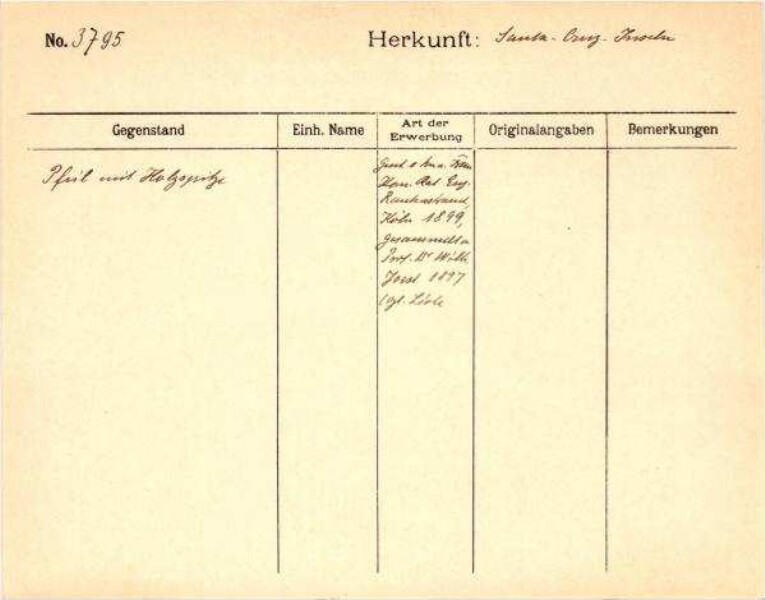 No. 3795 Herkunft: Santa-Cruz-Inseln
Gegenstand
Einh. Name
Art der
Erwerbung
Originalangaben
Bemerkungen
Pfeil mit Holzspitze
Frau
Rautenstrauch,
Köln 1899,
gesammelt v.
Prof. Dr Wilh.
Joest 1897
(vgl. Liste